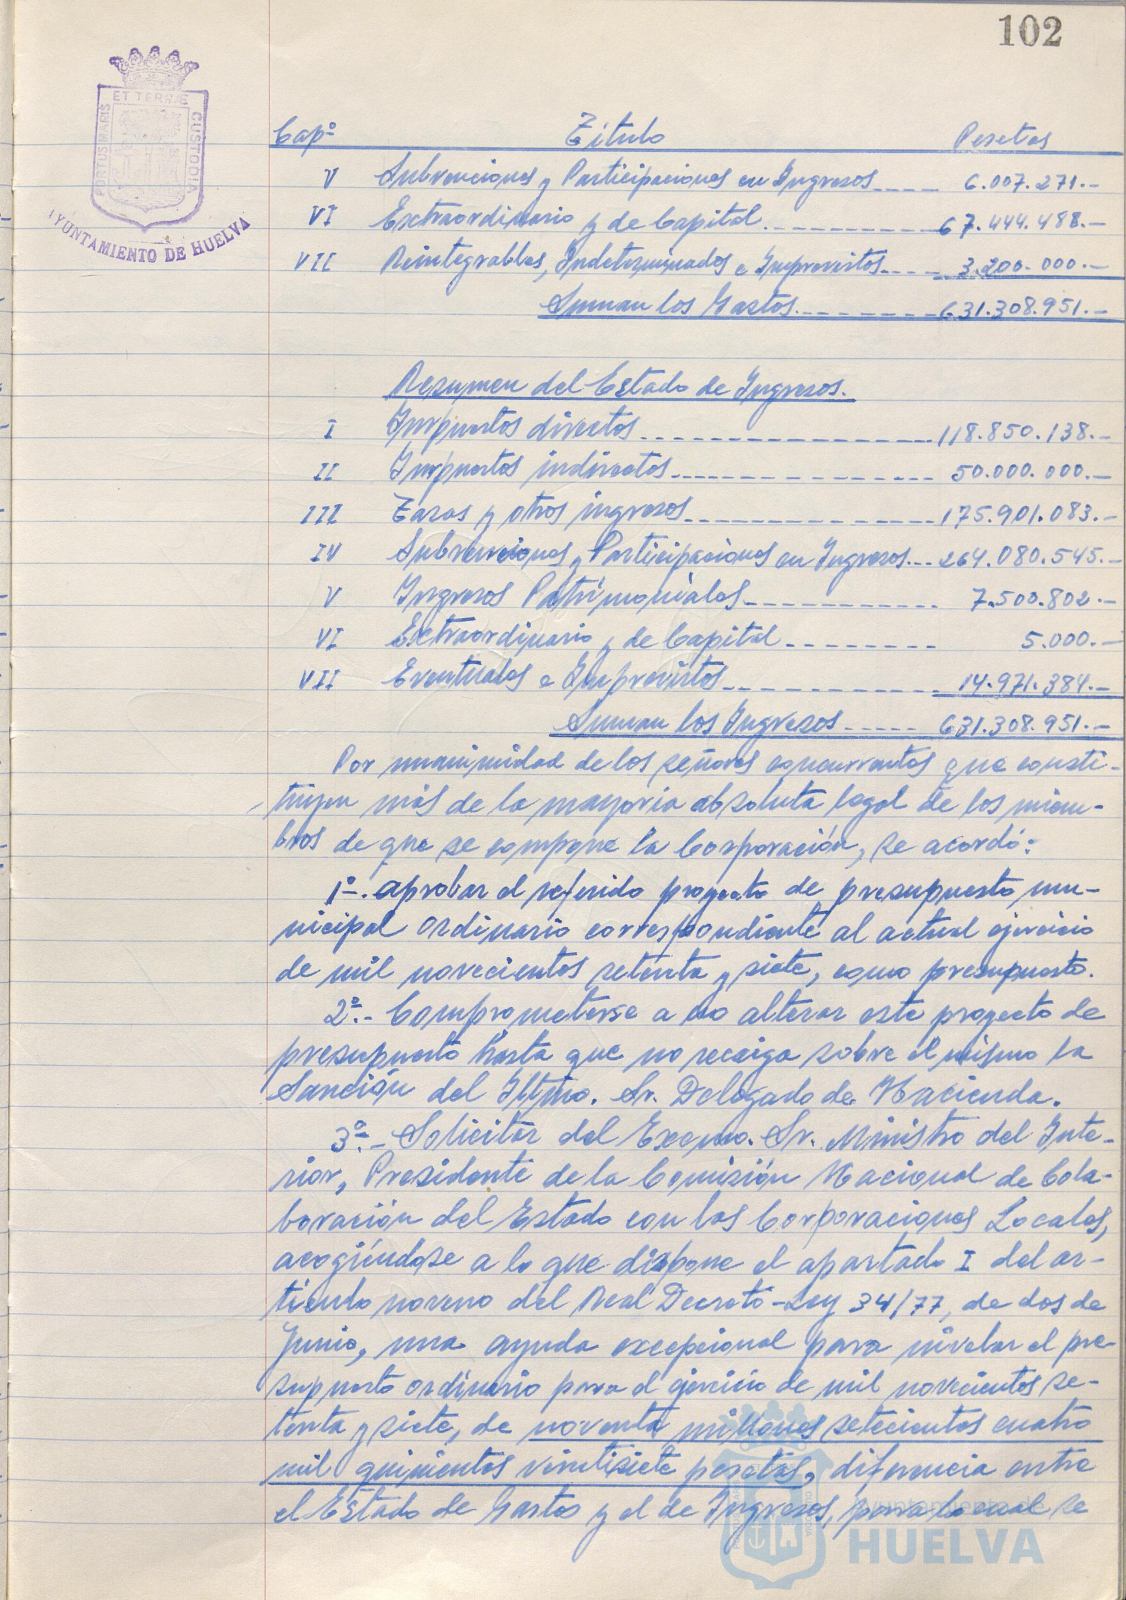 102
ET TERRÆ
PORTUS MARIS
CUSTODIA
AYUNTAMIENTO DE HUELVA
Capº Título Pesetas
V Subvenciones y Participaciones en Ingresos---- 6.007.271.-
VI Extraordinario y de Capital.---------- 67.444.488.-
VII Reintegrables, Indeterminados e Imprevistos---- 3.200.000.-
Suman los Gastos.-------- 631.308.951.-
Resumen del Estado de Ingresos.
I Impuestos directos---------------- 118.850.138.-
II Impuestos indirectos-------------- 50.000.000.-
III Tasas y otros ingresos------------- 175.901.083.-
IV Subvenciones y Participaciones en Ingresos--- 264.080.545.-
V Ingresos Patrimoniales---------- 7.500.802.-
VI Extraordinario y de Capital-------- 5.000.-
VII Eventuales e Imprevistos----------- 14.971.384.-
Suman los Ingresos----- 631.308.951.-
Por unanimidad de los señores concurrentes que consti-
tuyen más de la mayoría absoluta legal de los miem-
bros de que se compone la Corporación, se acordó:
1º.- aprobar el referido proyecto de presupuesto mu-
nicipal ordinario correspondiente al actual ejercicio
de mil novecientos setenta y siete, como presupuesto.
2º.- Comprometerse a no alterar este proyecto de
presupuesto hasta que no recaiga sobre el mismo la
Sanción del Iltmo. Sr. Delegado de Hacienda.
3º.- Solicitar del Excmo. Sr. Ministro del Inte-
rior, Presidente de la Comisión Nacional de Cola-
boración del Estado con las Corporaciones Locales,
acogiéndose a lo que dispone el apartado I del ar-
tículo noveno del Real Decreto-Ley 34/77, de dos de
Junio, una ayuda excepcional para nivelar el pre-
supuesto ordinario para el ejercicio de mil novecientos se-
tenta y siete, de noventa millones setecientos cuatro
mil quinientos veintisiete pesetas, diferencia entre
el Estado de Gastos y el de Ingresos, para lo cual se
Ayuntamiento de
HUELVA